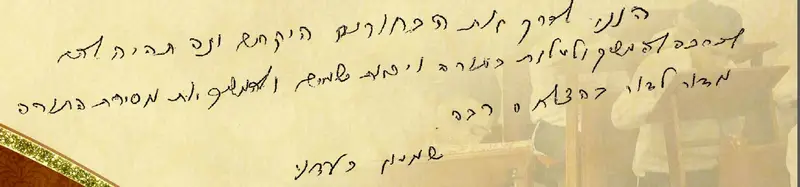 הנני לברך את הבחורים היקרים ונפ תהיה להם
להמשיך ולעלות בתורה ויראת שמים ולהמשיך את מסירת התורה
מדור לדור בהצלחה רבה
שמעון בעדני